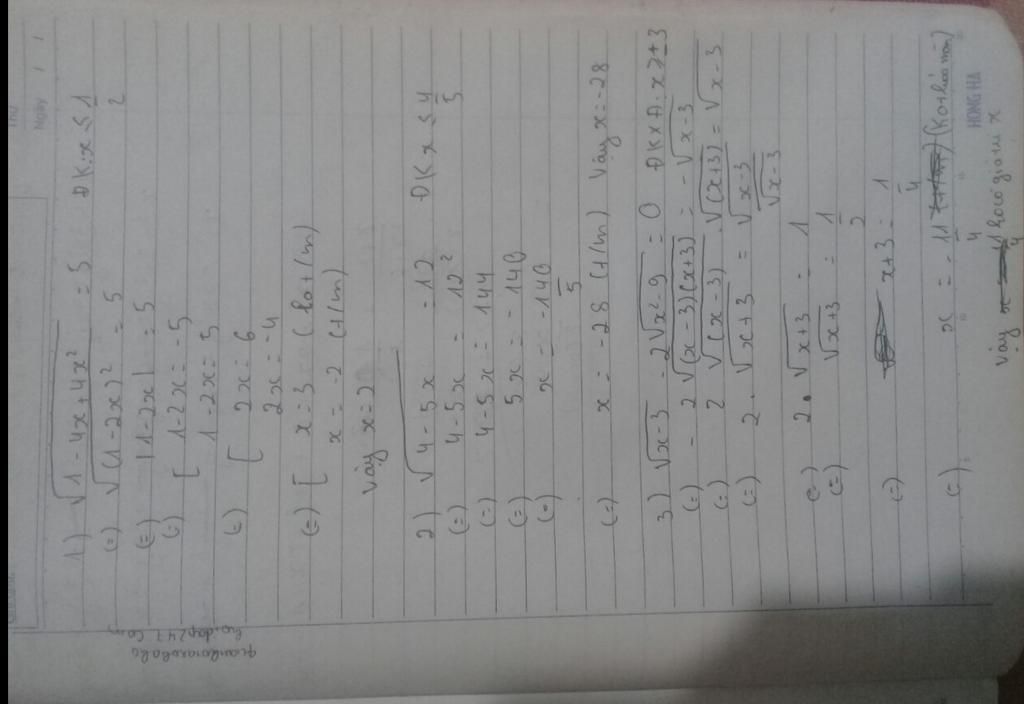 Ngày
1) √1 - 4x + 4x² = 5 ĐK: x ≤ 1/2
(=) √(1 - 2x)² = 5
(=) |1 - 2x| = 5
(=) [ 1 - 2x = -5
1 - 2x = 5
(=) [ 2x = 6
2x = -4
(=) [ x = 3 (lo t/m)
x = -2 (t/m)
Vậy x = 2
2) √4 - 5x = 12 ĐK x ≤ 4/5
(=) 4 - 5x = 12²
(=) 4 - 5x = 144
(=) 5x = -140
(=) x = -140/5
(=) x = -28 (t/m) Vậy x = -28
3) √x - 3 - 2√x² - 9 = 0 ĐKXĐ: x ≥ ±3
(=) - 2√(x - 3)(x + 3) = - √x - 3
(=) 2√(x - 3) . √(x + 3) = √x - 3
(=) 2. √x + 3 = √x - 3/√x - 3
(=) 2. √x + 3 = 1
(=) √x + 3 = 1/2
(=) x + 3 = 1/4
(=) x = -11/4 (Ko thỏa mãn)
HONG HA
Vậy ko có giá trị x